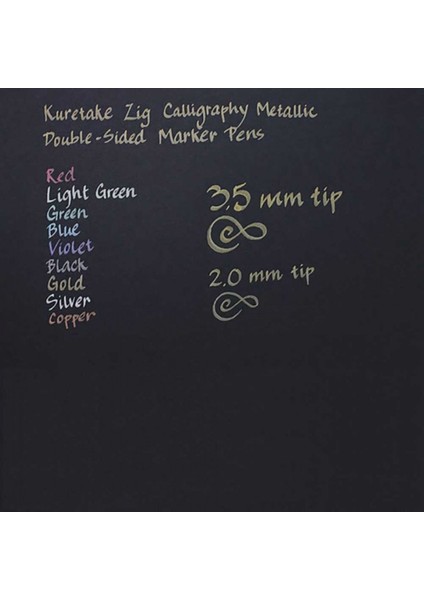 Kuretake Zig Calligraphy Metallic
Double-Sided Marker Pens
Red
Light Green
Green
Blue
Violet
Black
Gold
Silver
Copper
3.5 mm tip
2.0 mm tip